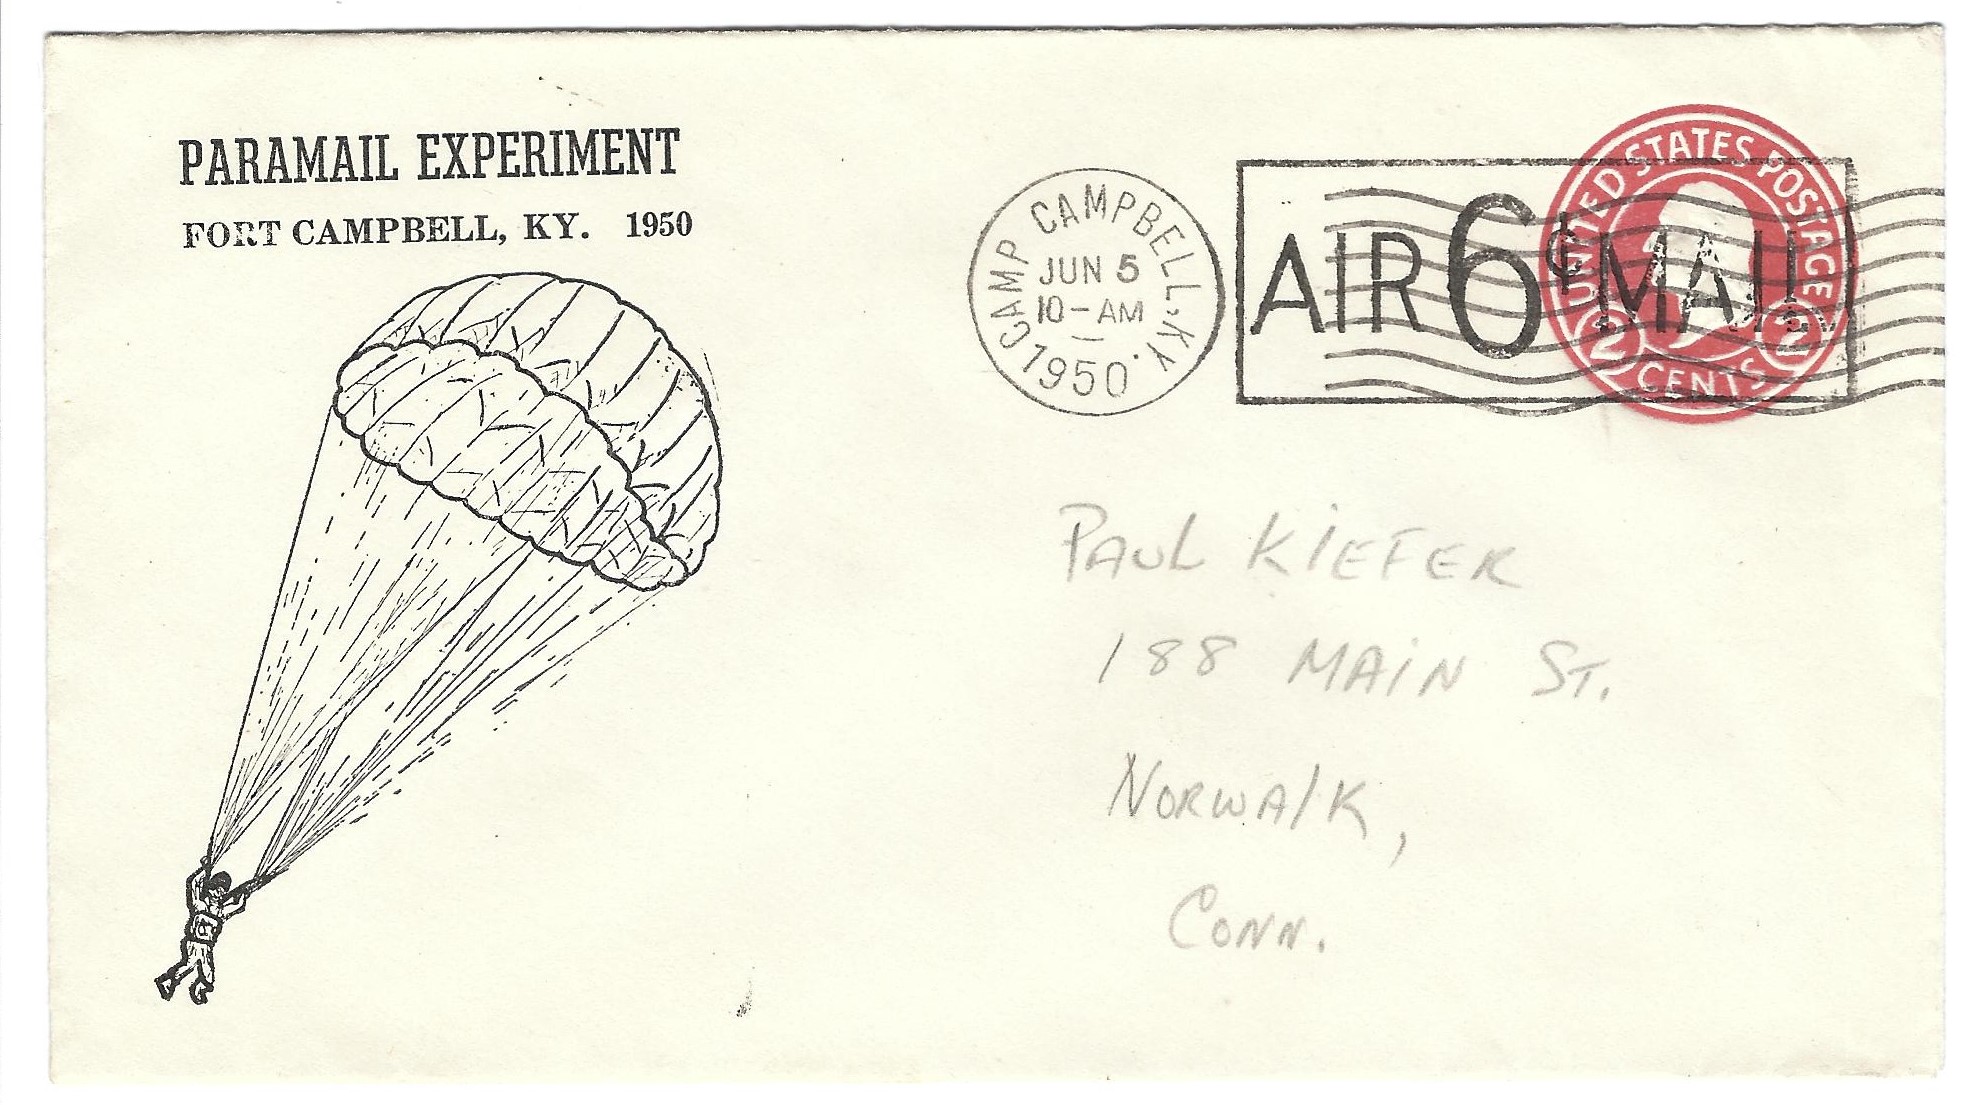 PARAMAIL EXPERIMENT
FORT CAMPBELL, KY. 1950
CAMP CAMPBELL, KY.
JUN 5
10-AM
1950
AIR 6¢ MAIL
UNITED STATES POSTAGE
2 CENTS 2
PAUL KIEFER
188 MAIN ST.
NORWAlK,
CONN.